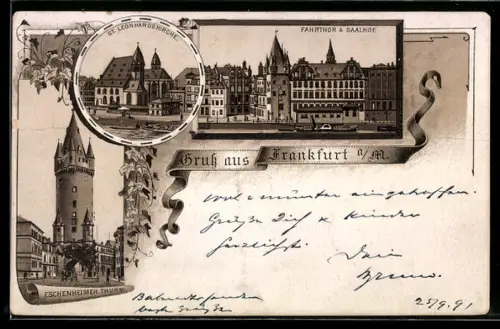 ST. LEONHARDSKIRCHE.
FAHRTHOR & SAALHOF.
Gruß aus Frankfurt a/M.
ESCHENHEIMER THURM
Wohl & munter eingetroffen.
Grüße Dich & Kinder
herzlichst.
Dein
Bruno.
25/9.91